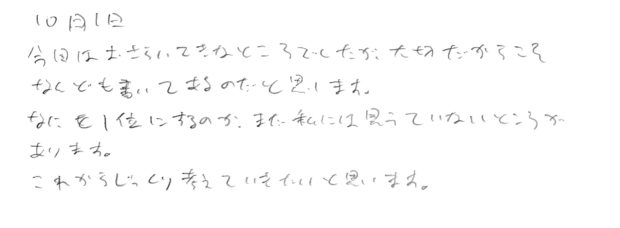 10月1日
今回はおさらいてきなところでしたが、大切だからこそ
なんども書いてあるのだと思います。
なにを1位にするのか、まだ私には思っていないところが
あります。
これからじっくり考えていきたいと思います。